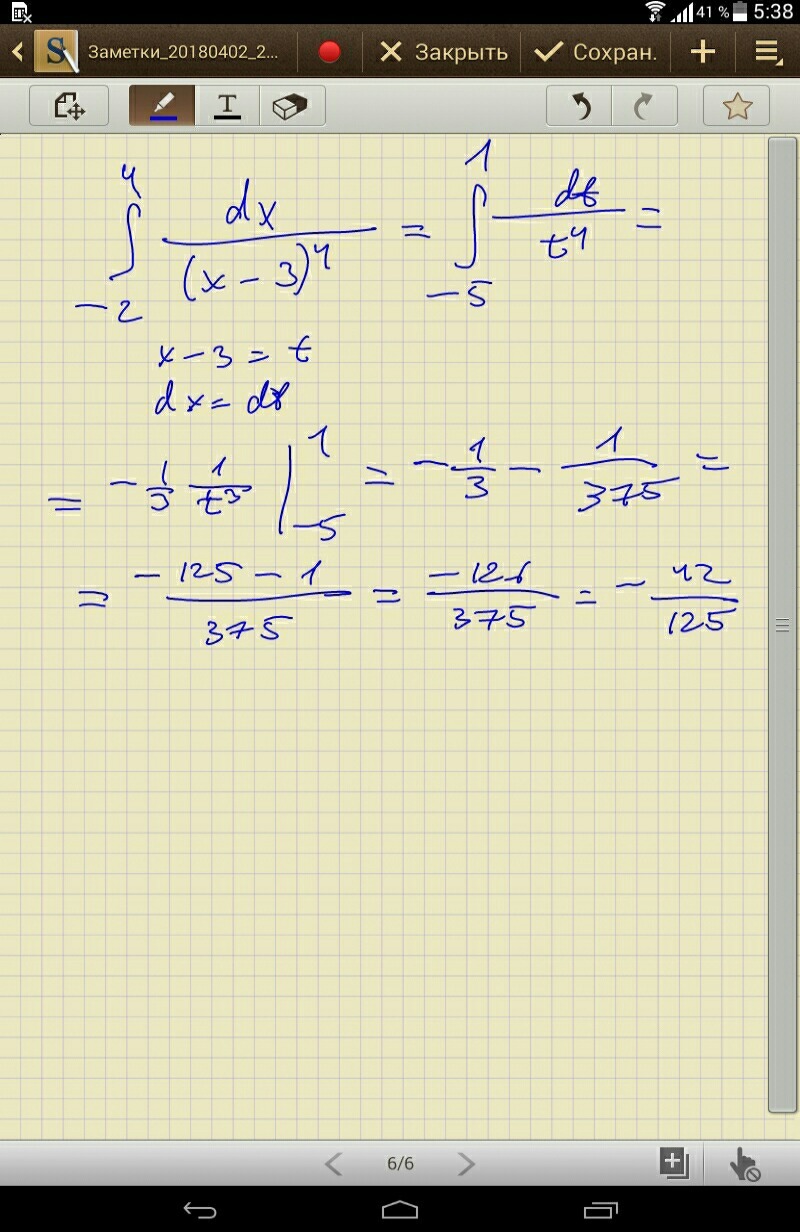 41 % 5:38
Заметки_20180402_2... Закрыть Сохран.
T
∫_{-2}^{4} dx/(x-3)^4 = ∫_{-5}^{1} dt/t^4 =
x-3 = t
dx = dt
= -1/3 1/t^3 |_{-5}^{1} = -1/3 - 1/375 =
= (-125-1)/375 = -126/375 = -42/125
6/6